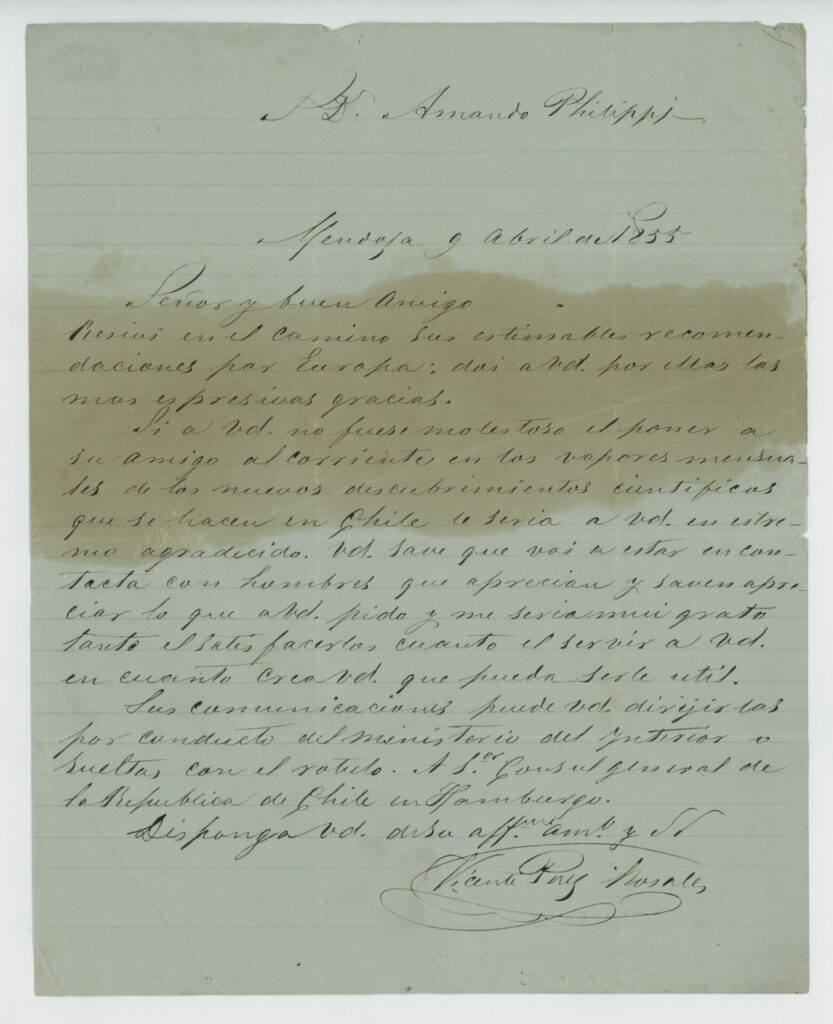 S D. Amando Philippi
Mendoza 9 Abril de 1855
Señor y buen Amigo
Resiví en el camino sus estimables recomen-
daciones par Europa: doi a Vd. por ellas las
mas espresivas gracias.
Si a Vd. no fuese molestoso el poner a
su amigo al corriente en los vapores mensua-
les de los nuevos descubrimientos cientificos
que se hacen en Chile le seria a Vd. en estre-
mo agradicido. Vd. save que voi a estar en con-
tacta con hombres que aprecian y saven apre-
ciar lo que a Vd. pido y me seria mui grato
tanto el satisfacerlos cuanto el servir a Vd.
en cuanto crea Vd. que pueda serle util.
Sus comunicaciones puede Vd. dirijirlas
por conducto del ministerio del Interior o
sueltas con el rotulo. A S.or Consul general de
la Republica de Chile en Hamburgo.
Disponga Vd. de su aff.mo am.o y
Vicente Perez Rosales